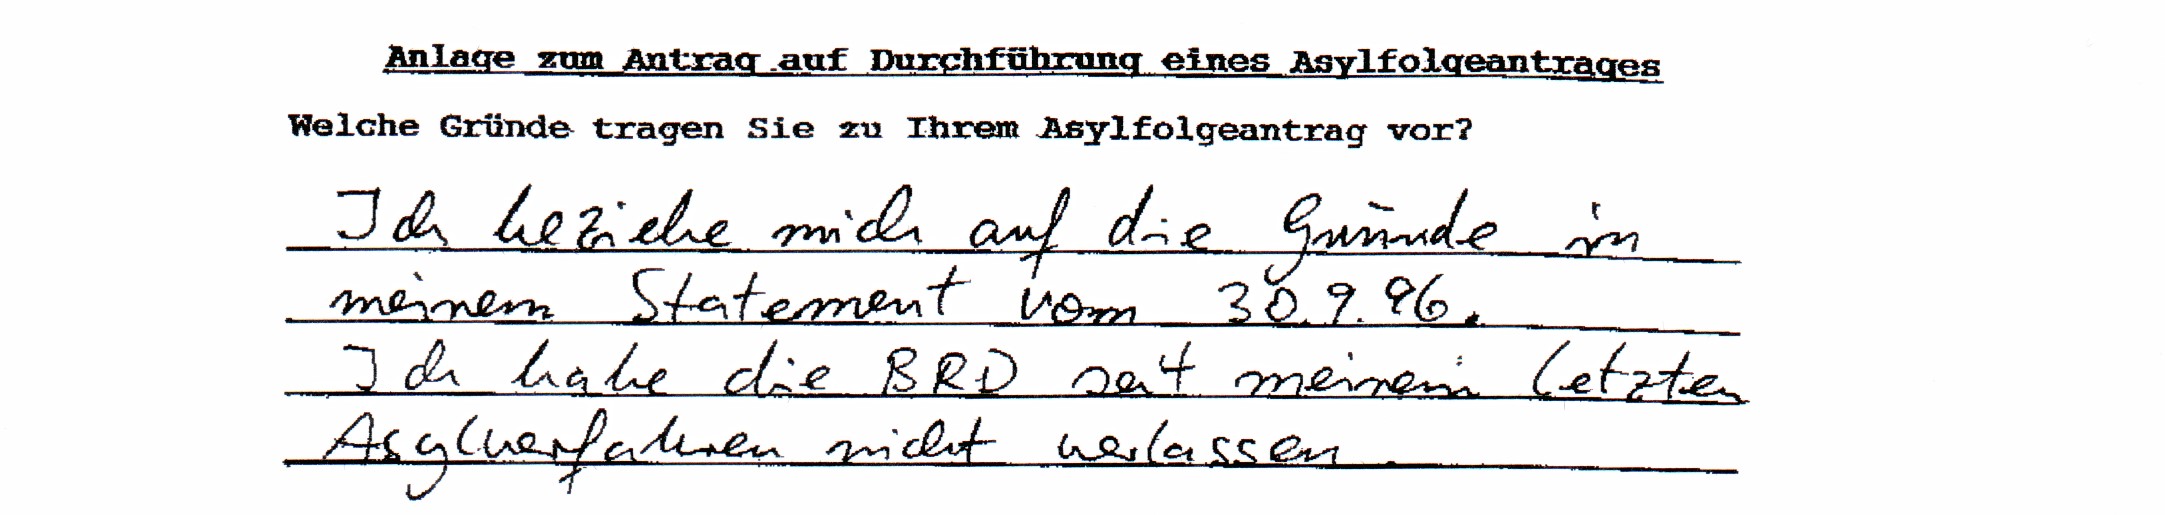 Anlage zum Antrag auf Durchführung eines Asylfolgeantrages
Welche Gründe tragen Sie zu Ihrem Asylfolgeantrag vor?
Ich beziehe mich auf die Gründe in
meinem Statement vom 30.9.96.
Ich habe die BRD seit meinem letzten
Asylverfahren nicht verlassen